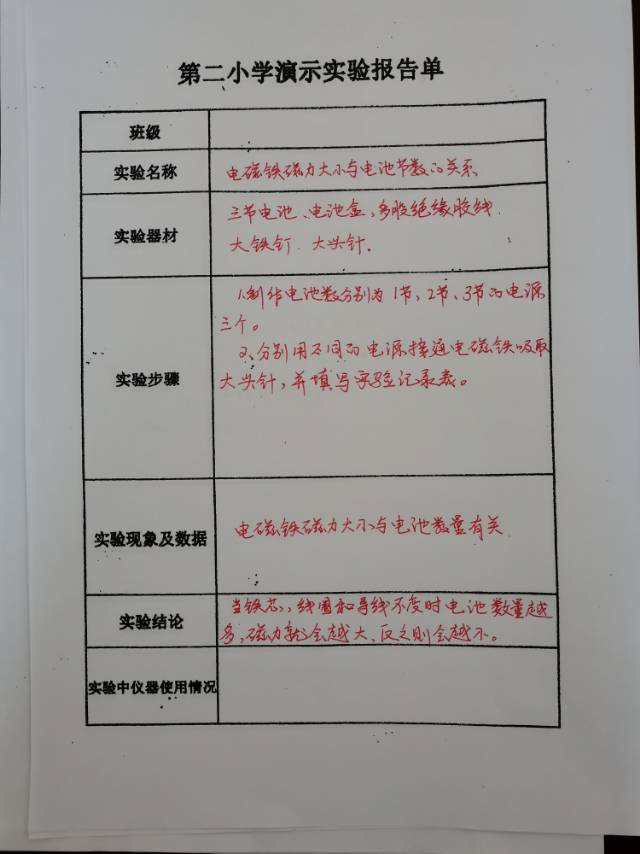 第二小学演示实验报告单
班级
实验名称 电磁铁磁力大小与电池节数的关系
实验器材 三节电池、电池盒,多股绝缘胶线.
大铁钉.大头针.
实验步骤 1.制作电池数分别为1节,2节、3节的电源
三个。
2、分别用不同的电源接通电磁铁吸取
大头针,并填写实验记录表。
实验现象及数据 电磁铁磁力大小与电池数量有关
实验结论 当铁芯,线圈和导线不变时电池数量越
多,磁力就会越大,反之则会越小。
实验中仪器使用情况